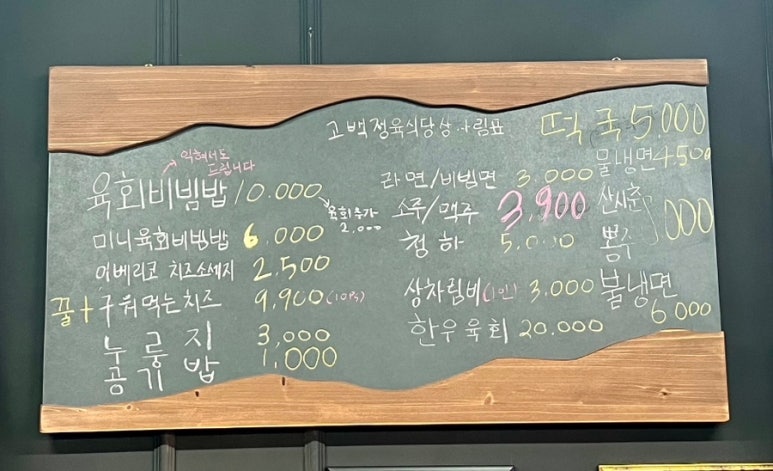 고백정육식당 상차림표
익혀서도
드립니다
육회비빔밥 10.000
육회추가
2.000
미니육회비빔밥 6.000
이베리코 치즈소세지 2.500
꿀+구워먹는치즈 9,900(10PS)
누룽지 3,000
공기밥 1,000
라면/비빔면 3.000
소주/맥주 3,900
청하 5.000
상차림비(1인) 3.000
한우육회 20.000
떡국 5.000
물냉면 4.500
산사춘
뽕주 ,000
불냉면
6.000